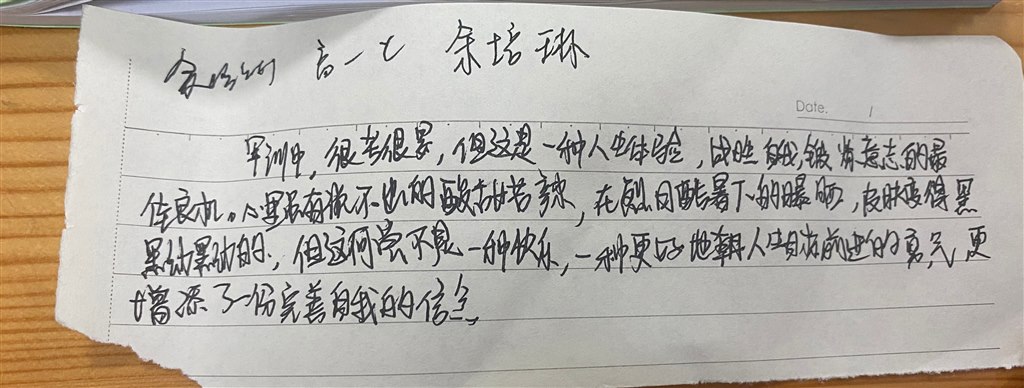 高一七 余培琳
Date. 1
军训中,很苦很累,但这是一种人生体验,战胜自我,锻炼意志的最
佳良机。心里虽有说不出的酸甜苦辣,在烈日酷暑下的曝晒,皮肤变得黑
黑黝黑黝的,但这何尝不是一种快乐,一种更好地朝人生目标前进的勇气,更
增添了一份完善自我的信念。